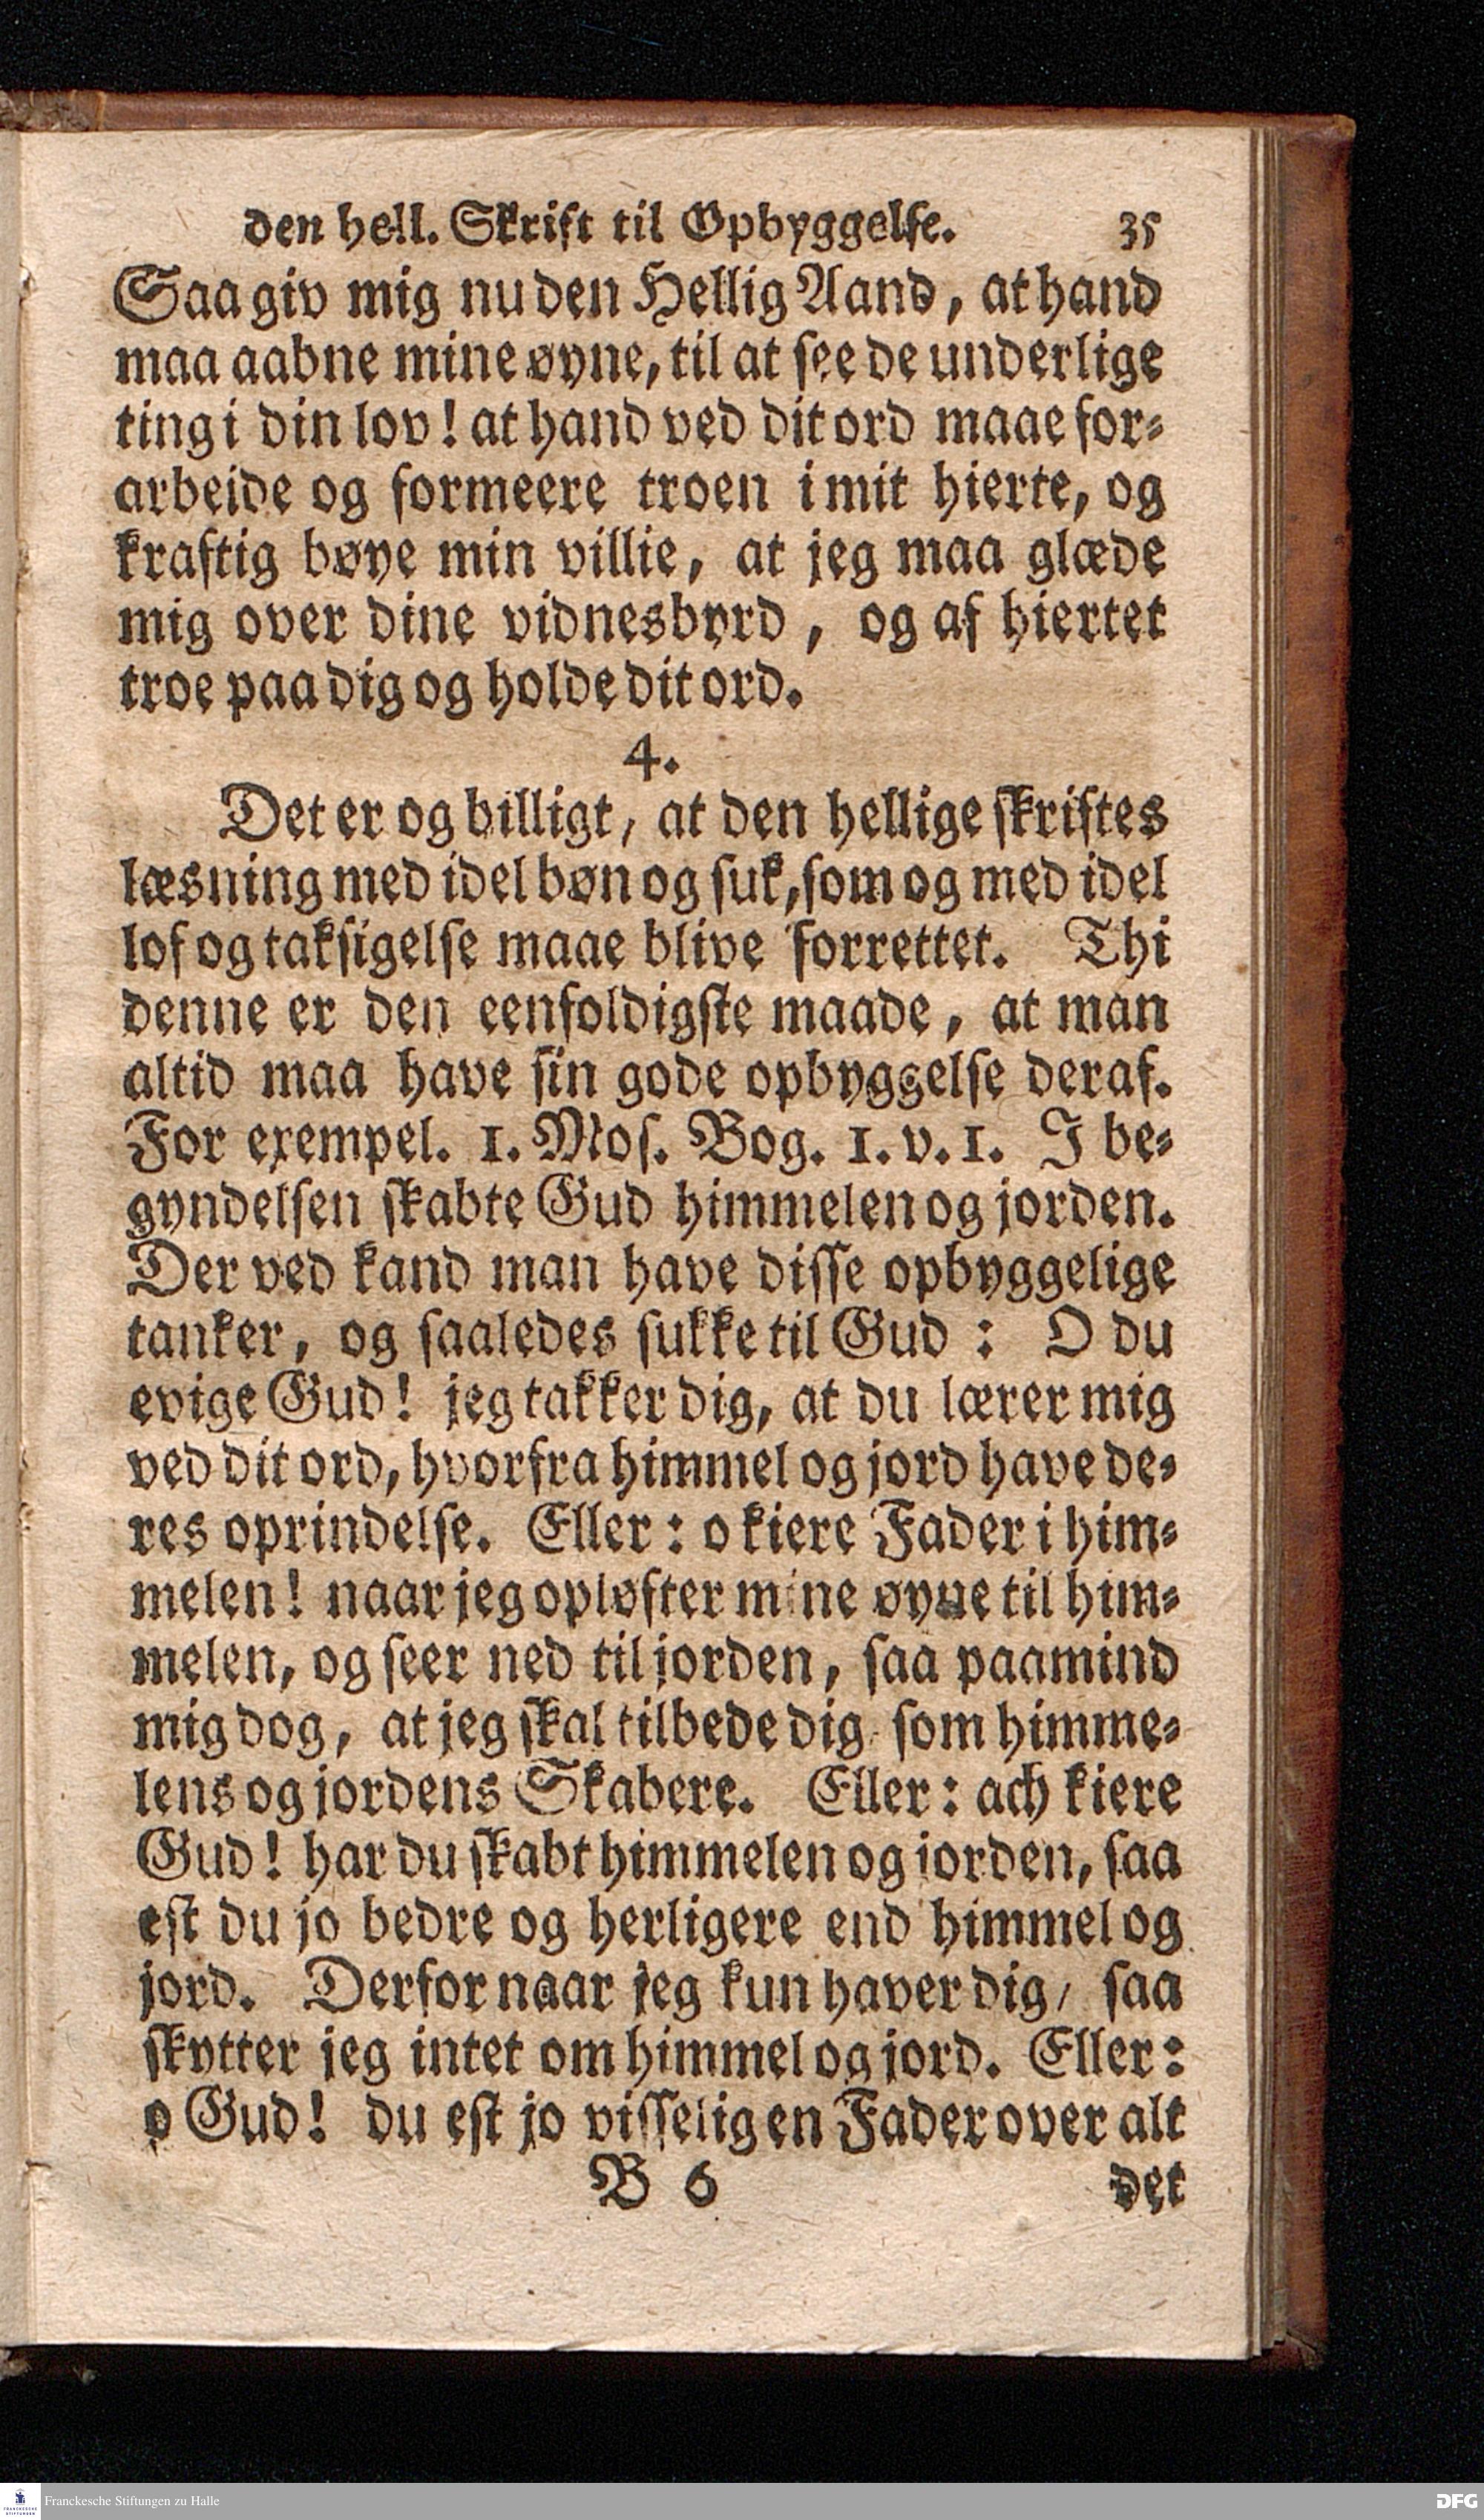 den hell. Skrift til Opbyggelse. 35
Saa giv mig nu den Hellig Aand, at hand
maa aabne mine øyne, til at see de underlige
ting i din lov! at hand ved dit ord maae for-
arbeide og formeere troen i mit hierte, og
kraftig bøye min villie, at jeg maa glæde
mig over dine vidnesbyrd, og af hiertet
troe paa dig og holde dit ord.
4.
Det er og billigt, at den hellige skriftes
læsning med idel bøn og suk, som og med idel
lof og taksigelse maae blive forrettet. Thi
denne er den eenfoldigste maade, at man
altid maa have sin gode opbyggelse deraf.
For exempel. 1. Mos. Bog. 1. v. 1. I be-
gyndelsen skabte Gud himmelen og jorden.
Der ved kand man have disse opbyggelige
tanker, og saaledes sukke til Gud: O du
evige Gud! jeg takker dig, at du lærer mig
ved dit ord, hvorfra himmel og jord have de-
res oprindelse. Eller: o kiere Fader i him-
melen! naar jeg opløfter mine øyne til him-
melen, og seer ned til jorden, saa paamind
mig dog, at jeg skal tilbede dig som himme-
lens og jordens Skabere. Eller: ach kiere
Gud! har du skabt himmelen og jorden, saa
est du jo bedre og herligere end himmel og
jord. Derfor naar jeg kun haver dig, saa
skytter jeg intet om himmel og jord. Eller:
o Gud! du est jo visselig en Fader over alt
B 6 det
Franckesche Stiftungen zu Halle
DFG